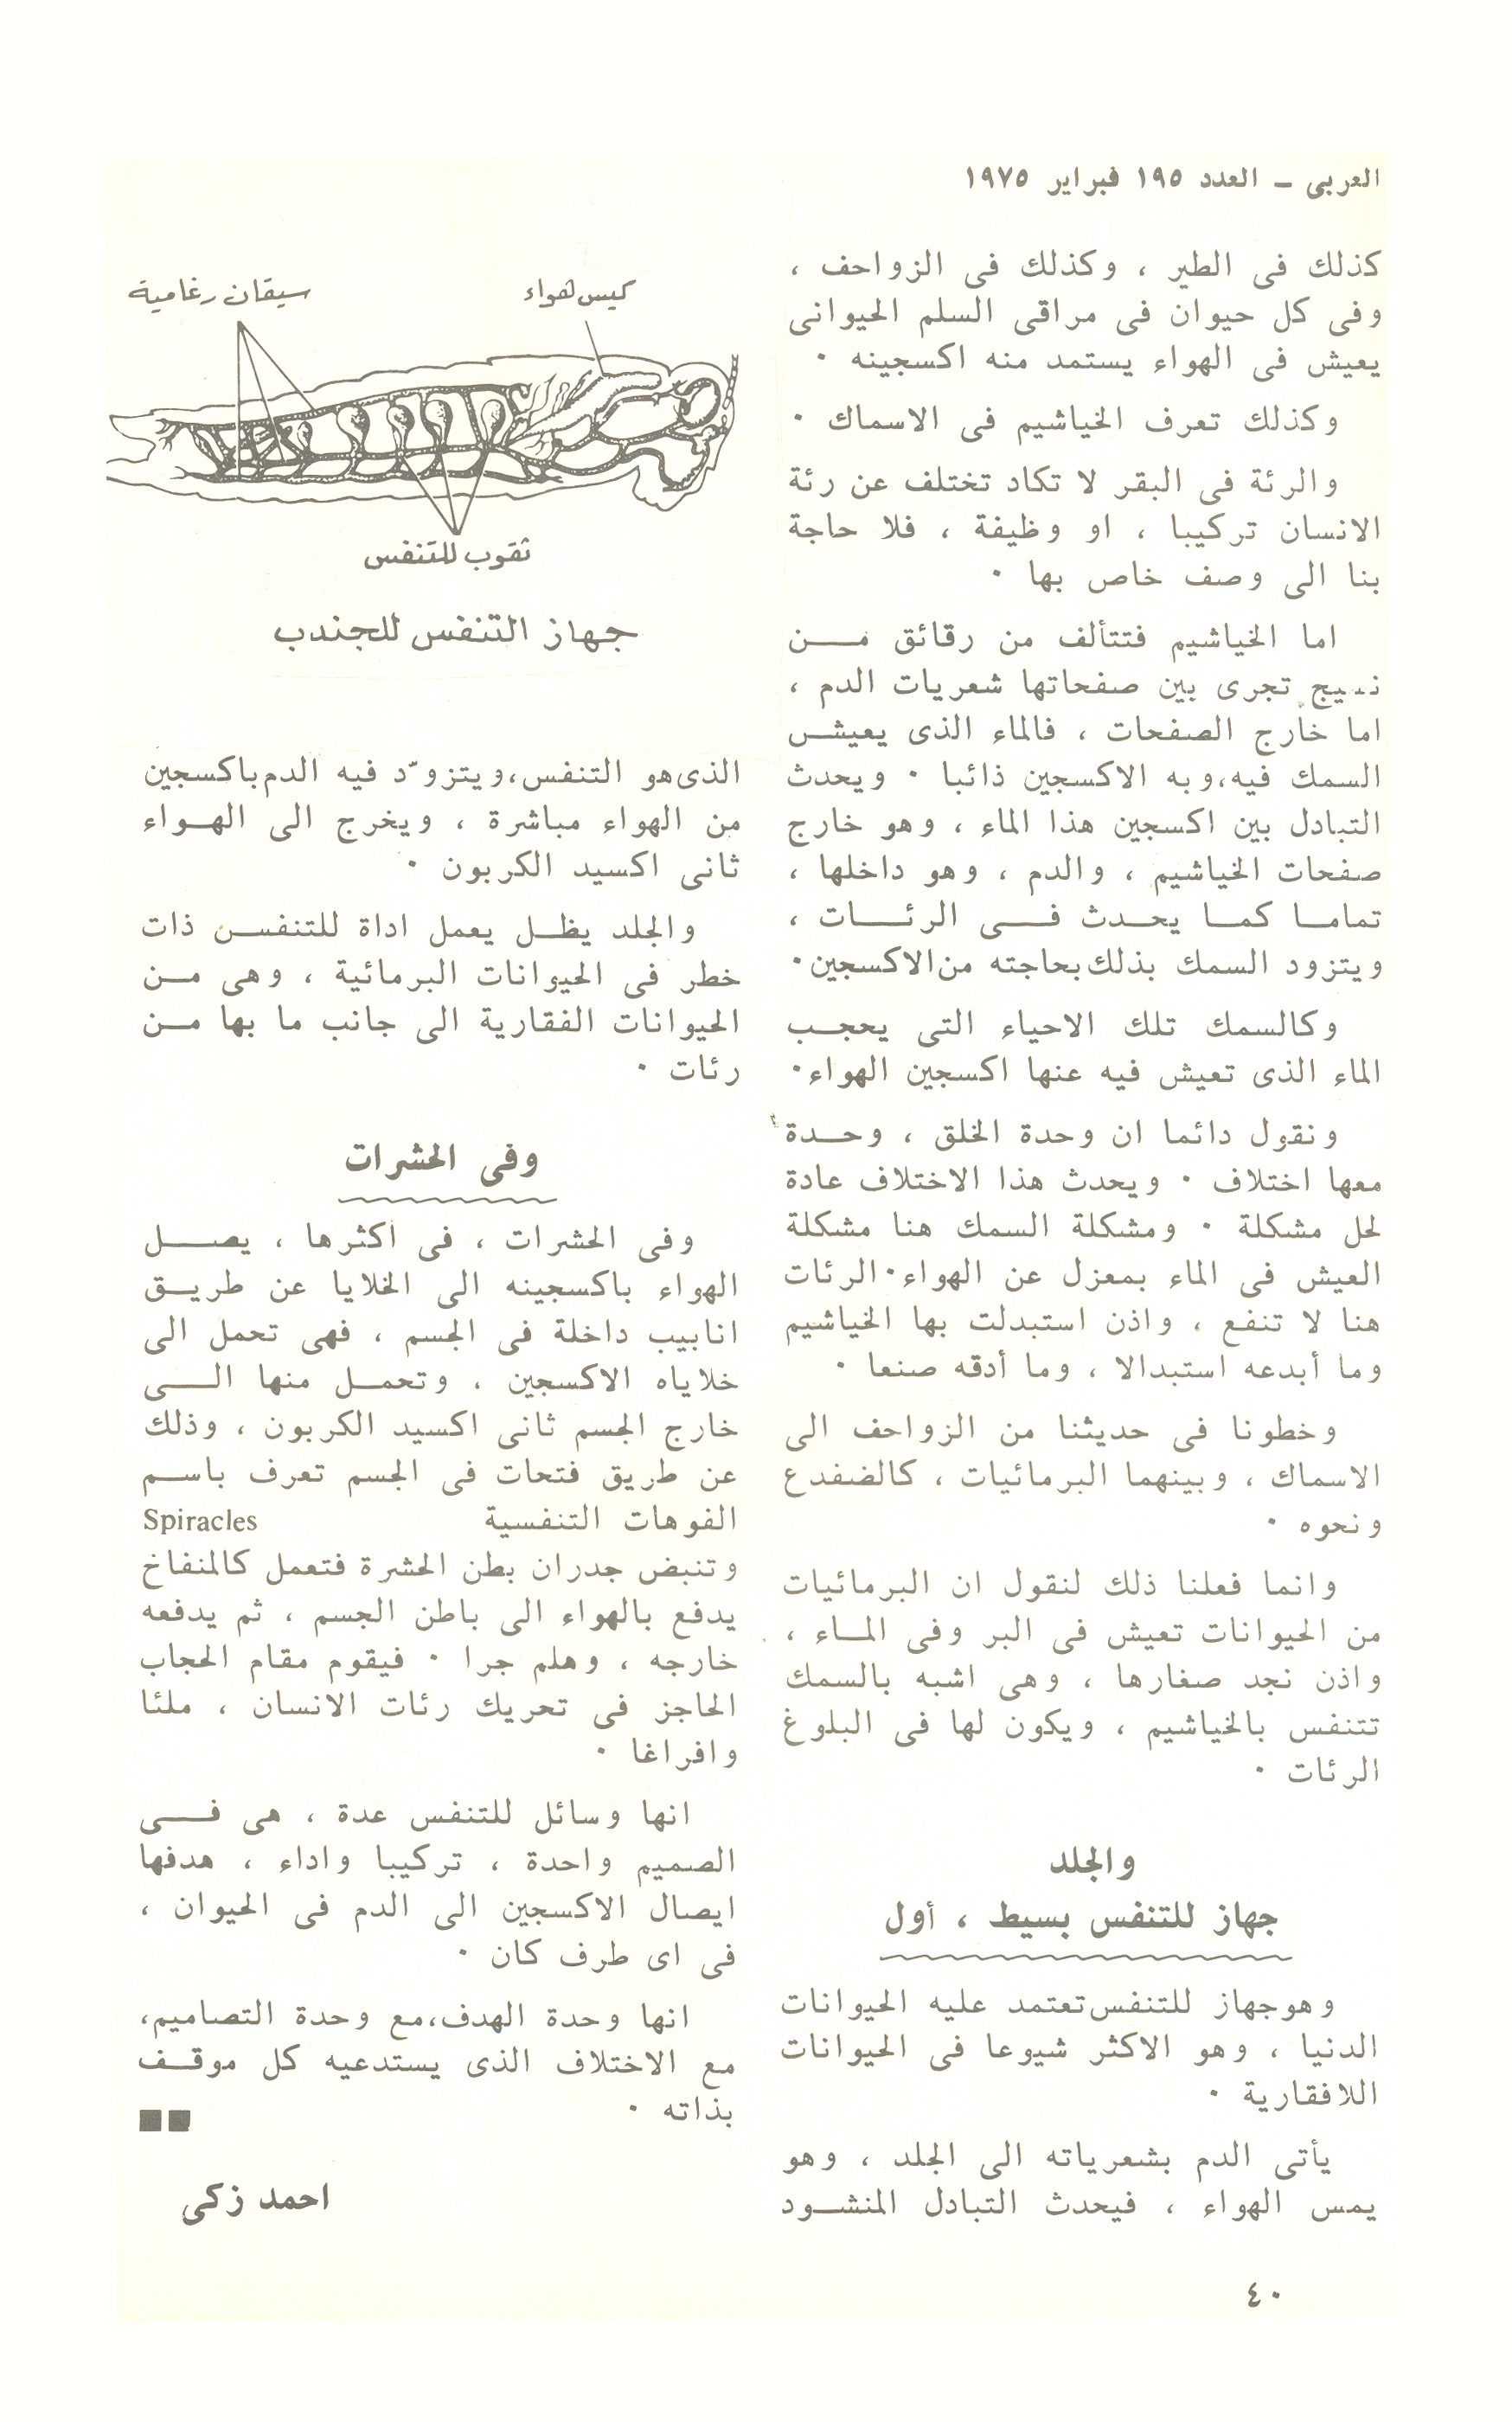 العربى – العدد ١٩٥ فبراير ١٩٧٥
كذلك فى الطير ، وكذلك فى الزواحف ،
وفى كل حيوان فى مراقى السلم الحيوانى
يعيش فى الهواء يستمد منه اكسجينه ٠
وكذلك تعرف الخياشيم فى الاسماك ٠
والرئة فى البقر لا تكاد تختلف عن رئة
الانسان تركيبا ، او وظيفة ، فلا حاجة
بنا الى وصف خاص بها ٠
اما الخياشيم فتتألف من رقائق مــن
نسيج تجرى بين صفحاتها شعريات الدم ،
اما خارج الصفحات ، فالماء الذى يعيش
السمك فيه،وبه الاكسجين ذائبا ٠ ويحدث
التبادل بين اكسجين هذا الماء ، وهو خارج
صفحات الخياشيم ، والدم ، وهو داخلها ،
تماما كما يحدث فــى الرئات ،
ويتزود السمك بذلك بحاجته من الاكسجين٠
وكالسمك تلك الاحياء التى يحجب
الماء الذى تعيش فيه عنها اكسجين الهواء٠
ونقول دائما ان وحدة الخلق ، وحدة
معها اختلاف ٠ ويحدث هذا الاختلاف عادة
لحل مشكلة ٠ ومشكلة السمك هنا مشكلة
العيش فى الماء بمعزل عن الهواء٠الرئات
هنا لا تنفع ، واذن استبدلت بها الخياشيم
وما أبدعه استبدالا ، وما أدقه صنعا ٠
وخطونا فى حديثنا من الزواحف الى
الاسماك ، وبينهما البرمائيات ، كالضفدع
ونحوه ٠
وانما فعلنا ذلك لنقول ان البرمائيات
من الحيوانات تعيش فى البر وفى الماء ،
واذن نجد صغارها ، وهى اشبه بالسمك
تتنفس بالخياشيم ، ويكون لها فى البلوغ
الرئات ٠
والجلد
جهاز للتنفس بسيط ، أول
وهوجهاز للتنفس تعتمد عليه الحيوانات
الدنيا ، وهو الاكثر شيوعا فى الحيوانات
اللافقارية ٠
يأتى الدم بشعرياته الى الجلد ، وهو
يمس الهواء ، فيحدث التبادل المنشود
كيس هواء
سيقان رغامية
ثقوب للتنفس
جهاز التنفس للجندب
الذى هو التنفس،ويتزوّد فيه الدم باكسجين
من الهواء مباشرة ، ويخرج الى الهواء
ثانى اكسيد الكربون ٠
والجلد يظل يعمل اداة للتنفس ذات
خطر فى الحيوانات البرمائية ، وهى مــن
الحيوانات الفقارية الى جانب ما بها مــن
رئات ٠
وفى الحشرات
وفى الحشرات ، فى أكثرها ، يصل
الهواء باكسجينه الى الخلايا عن طريق
انابيب داخلة فى الجسم ، فهى تحمل الى
خلاياه الاكسجين ، وتحمل منها الــى
خارج الجسم ثانى اكسيد الكربون ، وذلك
عن طريق فتحات فى الجسم تعرف باسم
الفوهات التنفسية Spiracles
وتنبض جدران بطن الحشرة فتعمل كالمنفاخ
يدفع بالهواء الى باطن الجسم ، ثم يدفعه
خارجه ، وهلم جرا ٠ فيقوم مقام الحجاب
الحاجز فى تحريك رئات الانسان ، ملئا
وافراغا ٠
انها وسائل للتنفس عدة ، هى فــى
الصميم واحدة ، تركيبا واداء ، هدفها
ايصال الاكسجين الى الدم فى الحيوان ،
فى اى طرف كان ٠
انها وحدة الهدف،مع وحدة التصاميم،
مع الاختلاف الذى يستدعيه كل موقف
بذاته ٠
احمد زكى
٤٠